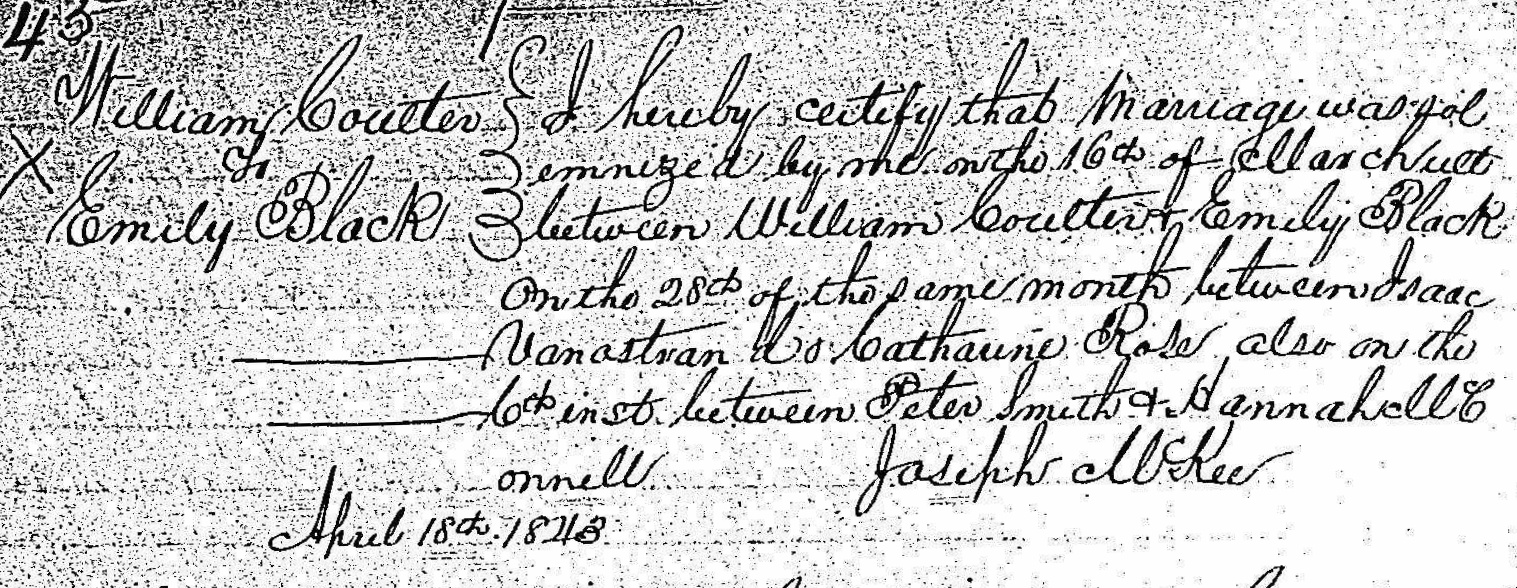 43
William Coulter } I hereby certify that Marriage was sol
X to } emnized by me on the 16th of March ult
Emily Black } between William Coulter & Emily Black
on the 28th of the same month between Isaac
Vanostran & Catharine Rose also on the
6th inst. between Peter Smith & Hannah McC
onnell Joseph McKee
April 18th. 1843